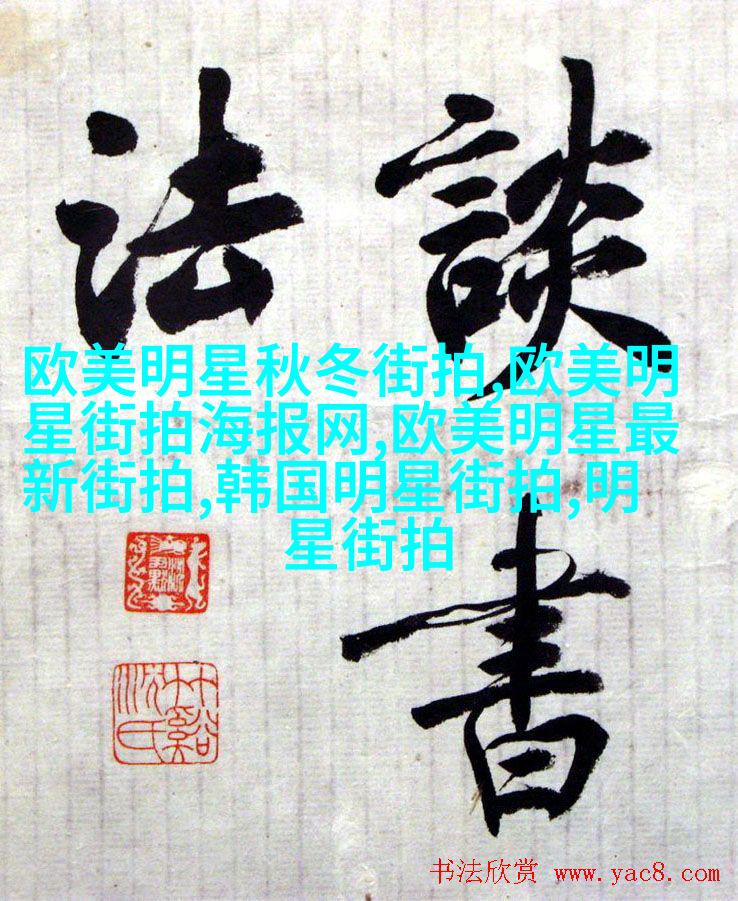 談書
法
欧美明星秋冬街拍,欧美明
星街拍海报网,欧美明星最
新街拍,韩国明星街拍,明
星街拍
书法欣赏 www.yac8.com